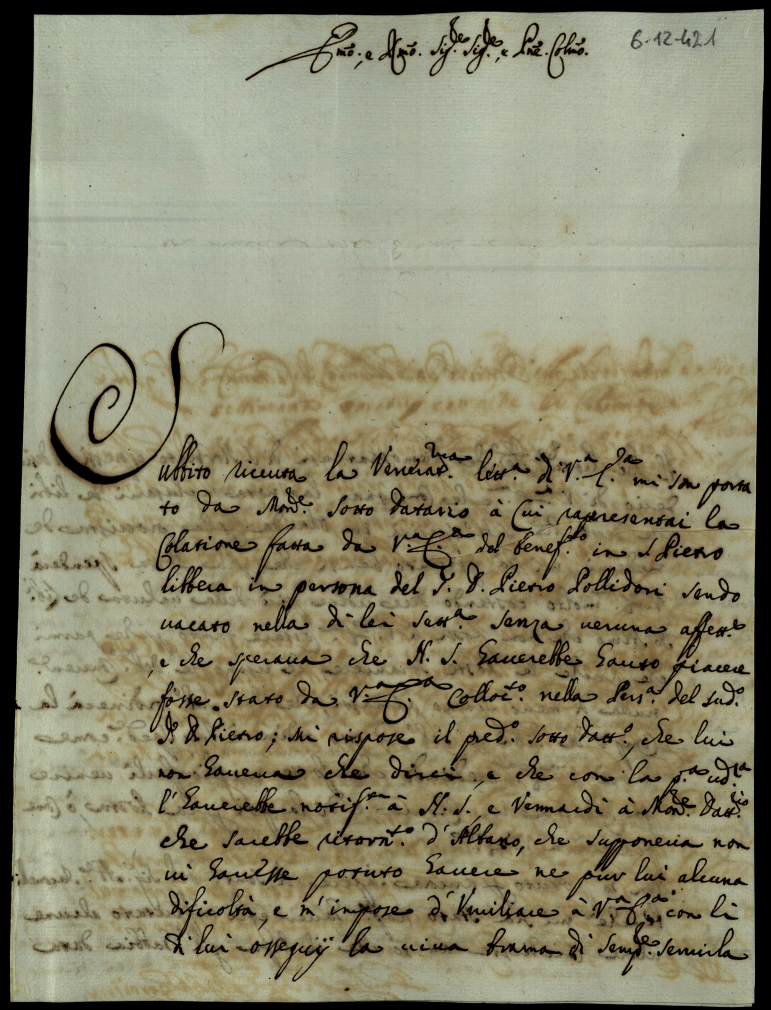 Emo:, e Rmo. Sigre. Sigre., e Pne. Colmo.
6-12-421
Subbito riceuta la Venerat.ma lett.a di V.a E.za mi son porta
to da Mon.e Sotto Datario à Cui rapresentai la
Colatione fatta da V.a E.a del benef.to in S Pietro
libbera in persona del S. D. Pietro Pollidori sendo
uacato nella di lei sett.a senza ueruna affett.e
, e che speraua che N. S. hauerebbe hauto piacere
fosse stato da V.a E.a Colloc.to nella Pers.a del sud.o
S. D. Pietro; mi rispose il pred.o sotto Datt.o, che lui
non haueua che dirci, e che con la p.a ud.za
l'hauerebbe notif.ta à N. S., e Vennardi à Mon.e Datt.rio
che sarebbe ritorn.to d'Albano, che supponeua non
ui hauesse potuto hauere ne pur lui alcuna
dificoltà, e m'impose d'Vmiliare à V.a E.a con li
di lui ossequij la uiua brama di semp.e seruirla